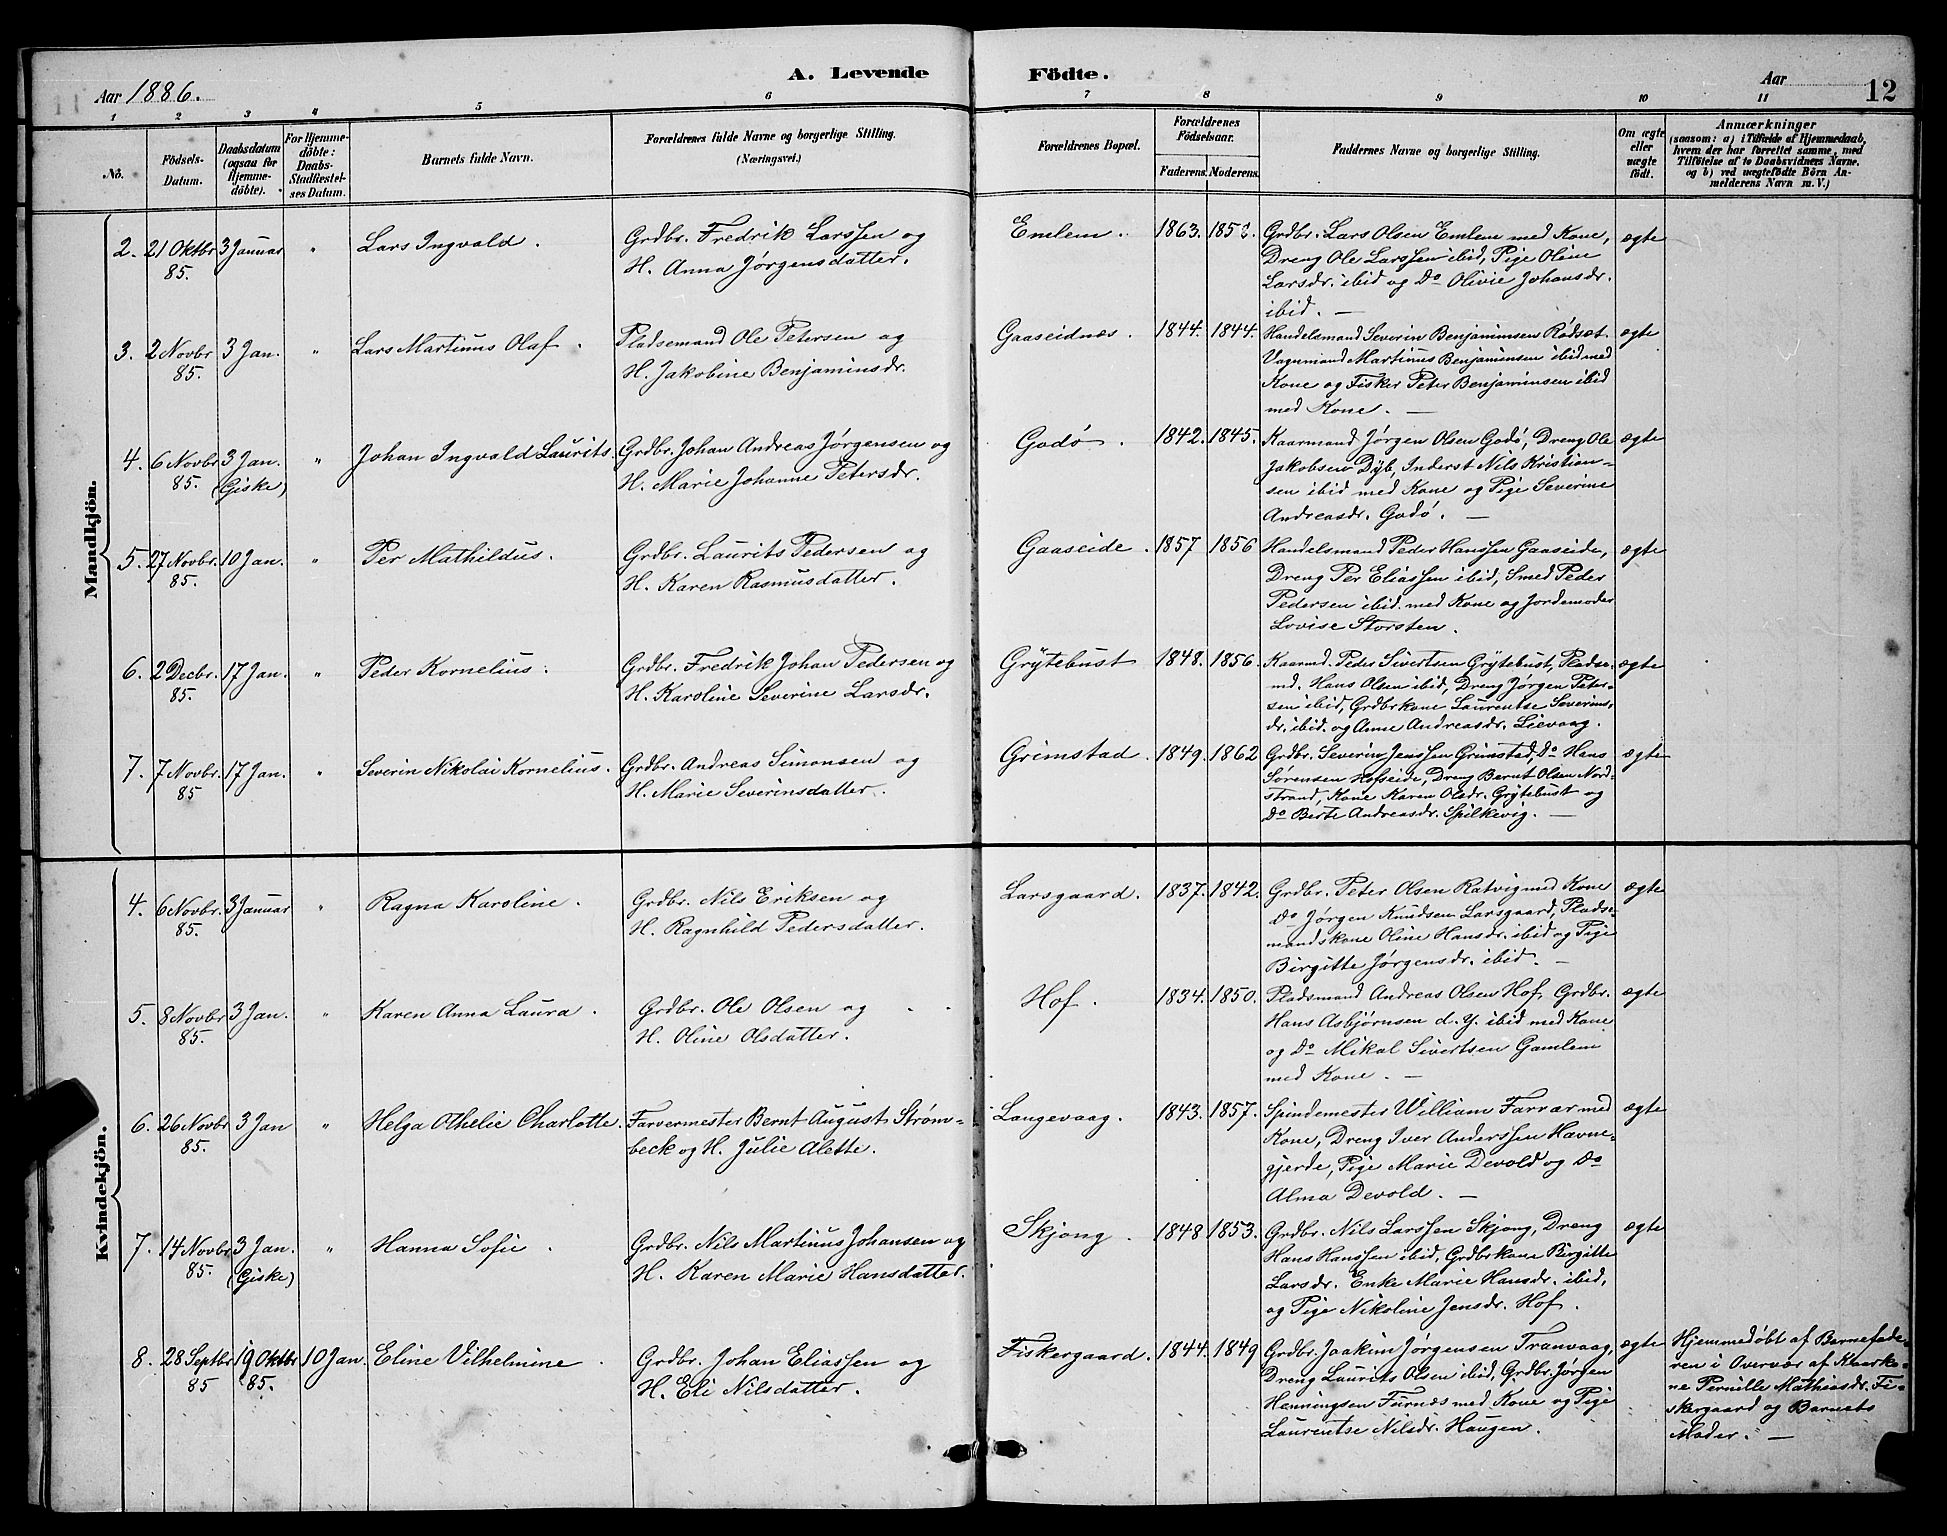 A. Levende Födte.
Aar 1886.
Aar
12
1 2 3 4 5 6 7 8 9 10 11
No.
Födsels-
Datum.
Daabsdatum
(ogsaa for
Hjemme-
döbte).
For Hjemme-
döbte:
Daabs-
Stadfæstel-
ses Datum.
Barnets fulde Navn.
Forældrenes fulde Navne og borgerlige Stilling.
(Næringsvei.)
Forældrenes Bopæl.
Forældrenes
Födselsaar.
Faderens. Moderens.
Faddernes Navne og borgerlige Stilling.
Om ægte
eller
uægte
födt.
Anmærkninger
(saasom: a) i Tilfælde af Hjemmedaab,
hvem der har forrettet samme, med
Tilföielse af to Daabsvidners Navne.
og b) ved uægtefödte Börn An-
melderens Navn m. V.)
Mandkjön.
2. 21 Oktbr 3 Januar " Lars Ingvald. Grdbr. Fredrik Larssen og Emlem. 1863. Grdbr. Lars Olsen Emlem med Kone, ægte
85. H. Anna Jørgensdatter. Dreng Ole Larssen ibid, Pige Oline
Larsdr. ibid og Do Olivie Johansdr.
ibid. —
3. 2 Novbr 3 Jan. " Lars Martinus Olaf. Pladsemand Ole Petersen og Gaaseidnæs. 1844. 1844. Handelsmand Severin Benjaminsen Rødsæt. ægte
85. H. Jakobine Benjaminsdr. Vognmand Martinus Benjaminsen ibid med
Kone og Fisker Peter Benjaminsen ibid
med Kone. —
4. 6 Novbr 3 Jan. " Johan Ingvald Laurits. Grdbr. Johan Andreas Jørgensen og Godø. 1842. 1845. Kaarmand Jørgen Olsen Godø, Dreng Ole ægte
85. (Giske) H. Marie Johanne Petersdr. Jakobsen Dyb, Inderst Nils Kristian-
sen ibid med Kone og Pige Severine
Andreasdr. Godø. —
5. 27 Novbr. 10 Jan. " Per Mathildus. Grdbr. Laurits Pedersen og Gaaseide. 1857 1856 Handelsmand Peder Hanssen Gaaseide, ægte
85. H. Karen Rasmusdatter. Dreng Per Eliassen ibid, Smed Peder
Pedersen ibid. med Kone og Jordemoder
Lovise Storsten.
6. 2 Decbr. 17 Jan. " Peder Kornelius. Grdbr. Fredrik Johan Pedersen og Grytebust 1848. 1856. Kaarmd. Peder Sivertsen Grytebust, Pladse- ægte
85. H. Karoline Severine Larsdr. md. Hans Olsen ibid, Dreng Jørgen Peter-
sen ibid, Grdbrkone Laurentse Severins-
dr. ibid. og Anne Andreasdr. Lievaag.
7. 7 Novbr. 17 Jan. " Severin Nikolai Kornelius. Grdbr. Andreas Simonsen og Grimstad. 1849. 1862 Grdbr. Severin Jenssen Grimstad, Do Hans ægte
85 H. Marie Severinsdatter. Sørensen Hofseide, Dreng Bernt Olsen Nord-
strand, Kone Karen Olsdr. Grytebust og
Do Berte Andreasdr. Spilkevig. —
Kvindekjön.
4. 6 Novbr. 3 Januar " Ragna Karoline. Grdbr. Nils Eriksen og Larsgaard. 1837. 1842. Grdbr. Peter Olsen Ratvig med Kone ægte
85. H. Ragnhild Pedersdatter. Do Jørgen Knudsen Larsgaard, Pladse-
mandskone Oline Hansdr. ibid og Pige
Birgitte Jørgensdr. ibid. —
5. 8 Novbr 3 Jan. " Karen Anna Laura. Grdbr. Ole Olsen og Hof. 1834. 1850. Pladsmand Andreas Olsen Hof, Grdbr. ægte
85. H. Oline Olsdatter. Hans Asbjørnsen d. y. ibid med Kone
og Do Mikal Sivertsen Gamlem
med Kone. —
6. 26 Novbr 3 Jan " Helga Othelie Charlotte. Farvermester Bernt August Strøm- Langevaag. 1843. 1857. Spindemester William Farrar med ægte
85. beck og H. Julie Alette. Kone, Dreng Iver Anderssen Havne-
gjerde, Pige Marie Devold og Do
Alma Devold. —
7. 14 Novbr 3 Jan. " Hanna Sofie. Grdbr. Nils Martinus Johansen og Skjong. 1848 1853. Grdbr. Nils Larssen Skjong, Dreng ægte
85. (Giske) H. Karen Marie Hansdatter. Hans Hanssen ibid, Grdbrkone Birgitte
Larsdr. Enke Marie Hansdr. ibid,
og Pige Nikoline Jensdr. Hof.
8. 28 Septbr 19 Oktbr 10 Jan. Eline Vilhelmine. Grdbr. Johan Eliassen og Fiskergaard. 1844. 1849 Grdbr. Joakim Jørgensen Tranvaag, ægte Hjemmedøbt af Barnefade-
85 85. H. Eli Nilsdatter. Dreng Laurits Olsen ibid, Grdbr. Jørgen ren i Overvær af
Henningsen Furnæs med Kone og Pige ne Pernille Mathiasdr. Fi-
Laurentse Nilsdr. Haugen. skergaard og Barnets
Moder. —